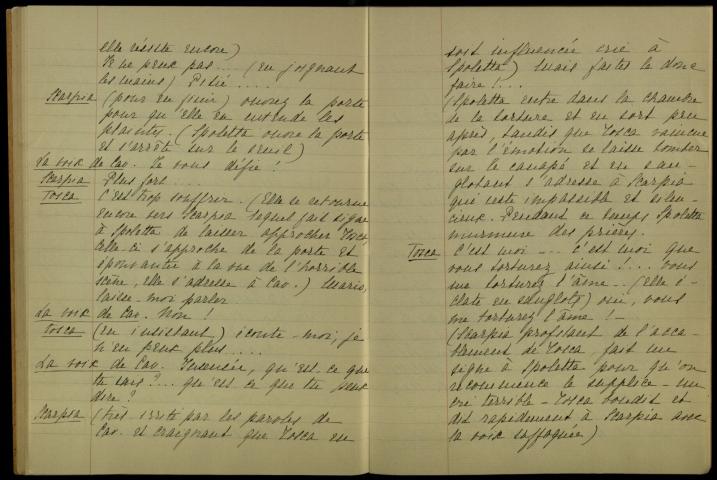 elle résiste encore)
Je ne peux pas ... (en joignant
les mains) Pitié ....
Scarpia (pour en finir) ouvrez la porte
pour qu'elle en entende les
plaintes. (Spoletta ouvre la porte
et s'arrête sur le seuil)
La voix de Cav. Je vous défie !
Scarpia Plus fort ....
Tosca C'est trop souffrir. (Elle se retourne
encore vers Scarpia lequel fait signe
à Spoletta de laisser approcher Tosca
celle ci s'approche de la porte et
épouvantée à la vue de l'horrible
scène, elle s'adresse à Cav.) Mario,
laisse-moi parler
La voix de Cav. Non !
Tosca (en insistant) écoute-moi, je
n'en peux plus ....
La voix de Cav. Insensée, qu'est ce que
tu sais ?... qu'est ce que tu peux
dire ?
Scarpia (très irrité par les paroles de
Cav. et craignant que Tosca en
soit influencée crie à
Spoletta) Mais faites le donc
taire !...
(Spoletta entre dans la chambre
de la torture et en sort peu
après, tandis que Tosca vaincue
par l'émotion se laisse tomber
sur le canapé et en san-
glotant s'adresse à Scarpia
qui reste impassible et silen-
cieux. Pendant ce temps Spoletta
murmure des prières.
Tosca C'est moi ... c'est moi que
vous torturez ainsi !... vous
me torturez l'âme .. (elle é-
clate en sanglots) oui, vous
me torturez l'âme ! -
(Scarpia profitant de l'acca-
blement de Tosca fait un
signe à Spoletta pour qu'on
recommence le supplice - un
cri terrible - Tosca bondit et
dit rapidement à Scarpia avec
la voix suffoquée)